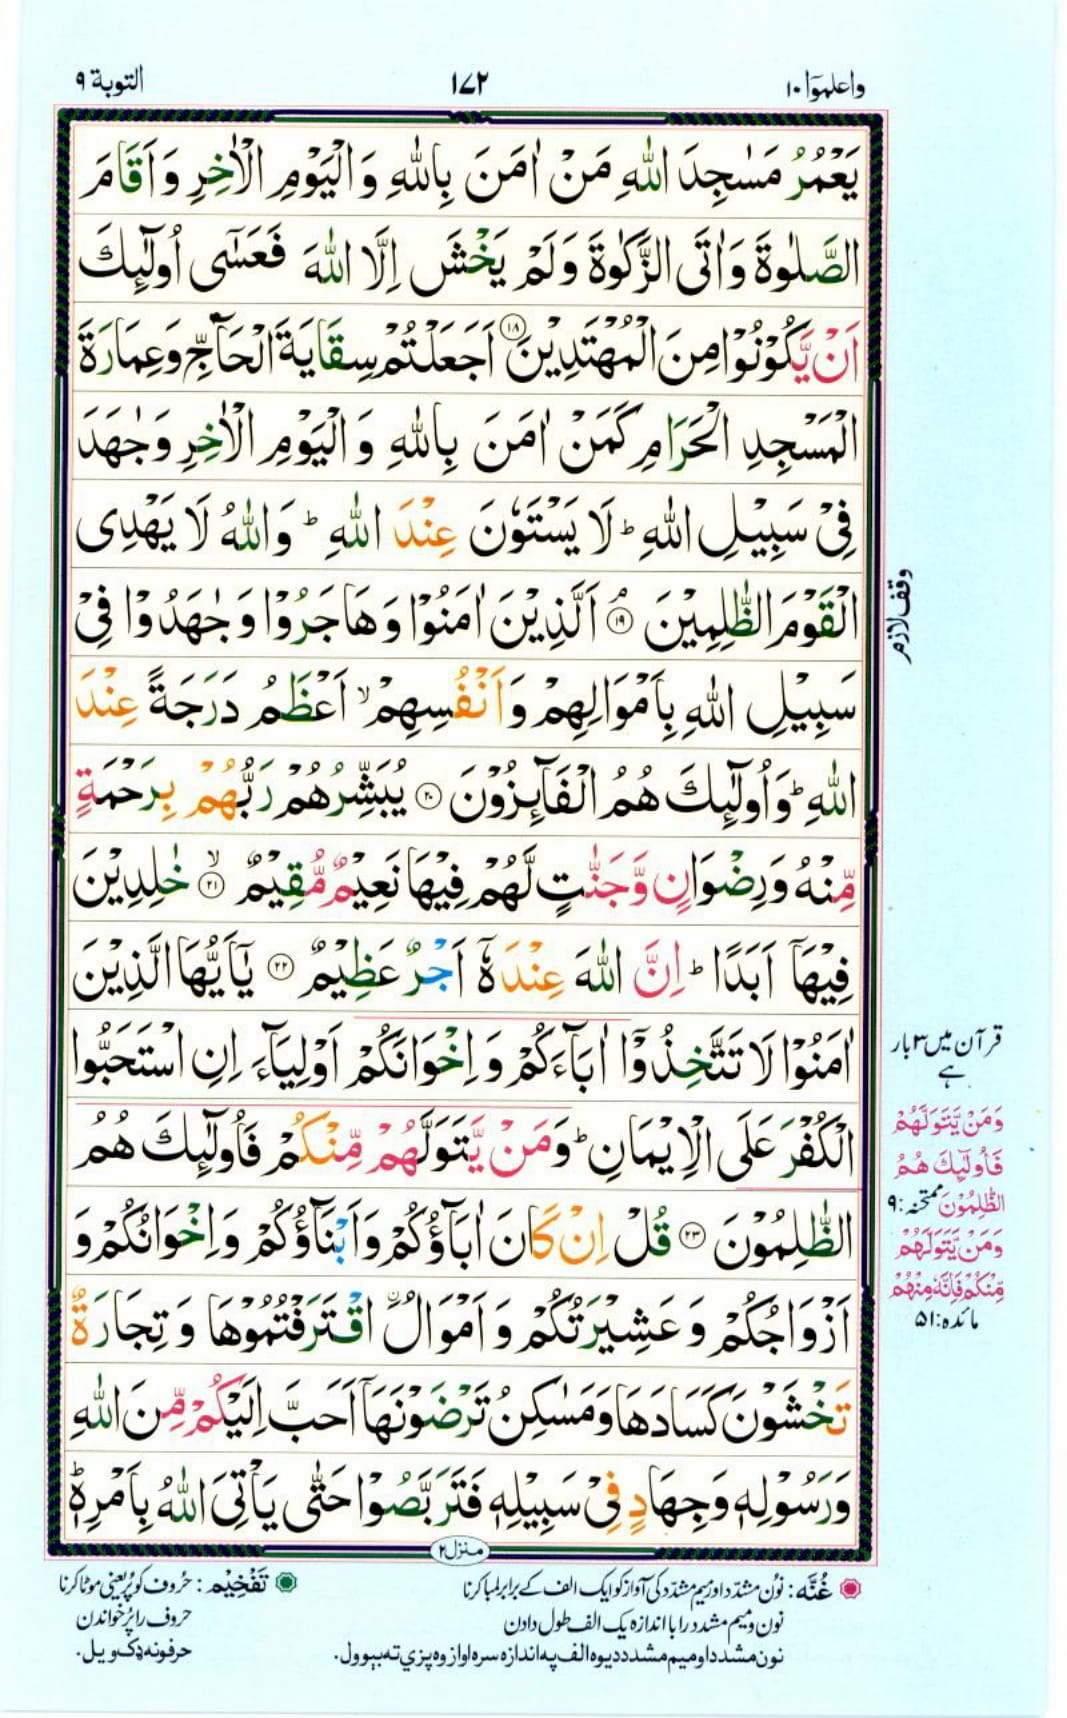 واعلموٓا ١٠
١٧٢
التوبة ٩
يَعْمُرُ مَسٰجِدَ اللّٰهِ مَنْ اٰمَنَ بِاللّٰهِ وَالْيَوْمِ الْاٰخِرِ وَاَقَامَ
الصَّلٰوةَ وَاٰتَى الزَّكٰوةَ وَلَمْ يَخْشَ اِلَّا اللّٰهَ فَعَسٰٓى اُولٰٓئِكَ
اَنْ يَّكُوْنُوْا مِنَ الْمُهْتَدِيْنَ ۝١٨ اَجَعَلْتُمْ سِقَايَةَ الْحَآجِّ وَعِمَارَةَ
الْمَسْجِدِ الْحَرَامِ كَمَنْ اٰمَنَ بِاللّٰهِ وَالْيَوْمِ الْاٰخِرِ وَجٰهَدَ
فِيْ سَبِيْلِ اللّٰهِ ؕ لَا يَسْتَوٗنَ عِنْدَ اللّٰهِ ؕ وَاللّٰهُ لَا يَهْدِى
الْقَوْمَ الظّٰلِمِيْنَ ۝١٩ۘ اَلَّذِيْنَ اٰمَنُوْا وَهَاجَرُوْا وَجٰهَدُوْا فِيْ
سَبِيْلِ اللّٰهِ بِاَمْوَالِهِمْ وَاَنْفُسِهِمْ ۙ اَعْظَمُ دَرَجَةً عِنْدَ
اللّٰهِ ؕ وَاُولٰٓئِكَ هُمُ الْفَآئِزُوْنَ ۝٢٠ يُبَشِّرُهُمْ رَبُّهُمْ بِرَحْمَةٍ
مِّنْهُ وَرِضْوَانٍ وَّجَنّٰتٍ لَّهُمْ فِيْهَا نَعِيْمٌ مُّقِيْمٌ ۝٢١ۙ خٰلِدِيْنَ
فِيْهَآ اَبَدًا ؕ اِنَّ اللّٰهَ عِنْدَهٗٓ اَجْرٌ عَظِيْمٌ ۝٢٢ يٰٓاَيُّهَا الَّذِيْنَ
اٰمَنُوْا لَا تَتَّخِذُوْٓا اٰبَآءَكُمْ وَاِخْوَانَكُمْ اَوْلِيَآءَ اِنِ اسْتَحَبُّوا
الْكُفْرَ عَلَى الْاِيْمَانِ ؕ وَمَنْ يَّتَوَلَّهُمْ مِّنْكُمْ فَاُولٰٓئِكَ هُمُ
الظّٰلِمُوْنَ ۝٢٣ قُلْ اِنْ كَانَ اٰبَآؤُكُمْ وَاَبْنَآؤُكُمْ وَاِخْوَانُكُمْ وَ
اَزْوَاجُكُمْ وَعَشِيْرَتُكُمْ وَاَمْوَالُ ۨاقْتَرَفْتُمُوْهَا وَتِجَارَةٌ
تَخْشَوْنَ كَسَادَهَا وَمَسٰكِنُ تَرْضَوْنَهَآ اَحَبَّ اِلَيْكُمْ مِّنَ اللّٰهِ
وَرَسُوْلِهٖ وَجِهَادٍ فِيْ سَبِيْلِهٖ فَتَرَبَّصُوْا حَتّٰى يَاْتِىَ اللّٰهُ بِاَمْرِهٖ ؕ
وقف لازم
قرآن میں ۳ بار
ہے
وَمَنْ يَّتَوَلَّهُمْ
فَاُولٰٓئِكَ هُمُ
الظّٰلِمُوْنَ ممتحنہ:۹
وَمَنْ يَّتَوَلَّهُمْ
مِّنْكُمْ فَاِنَّهٗ مِنْهُمْ
مائدہ:۵۱
منزل ۲
غُنَّه: نُون مشدّد اور میم مشدّد کی آواز کو ایک الف کے برابر لمبا کرنا
نون و میم مشدد را با اندازه یک الف طول دادن
نون مشدد او میم مشدد دیوه الف په اندازه سره اواز وه پزي ته بېوول.
تَفْخِيْم: حُروف کو پُر یعنی موٹا کرنا
حروف را پُر خواندن
حرفونه ډک ویل.